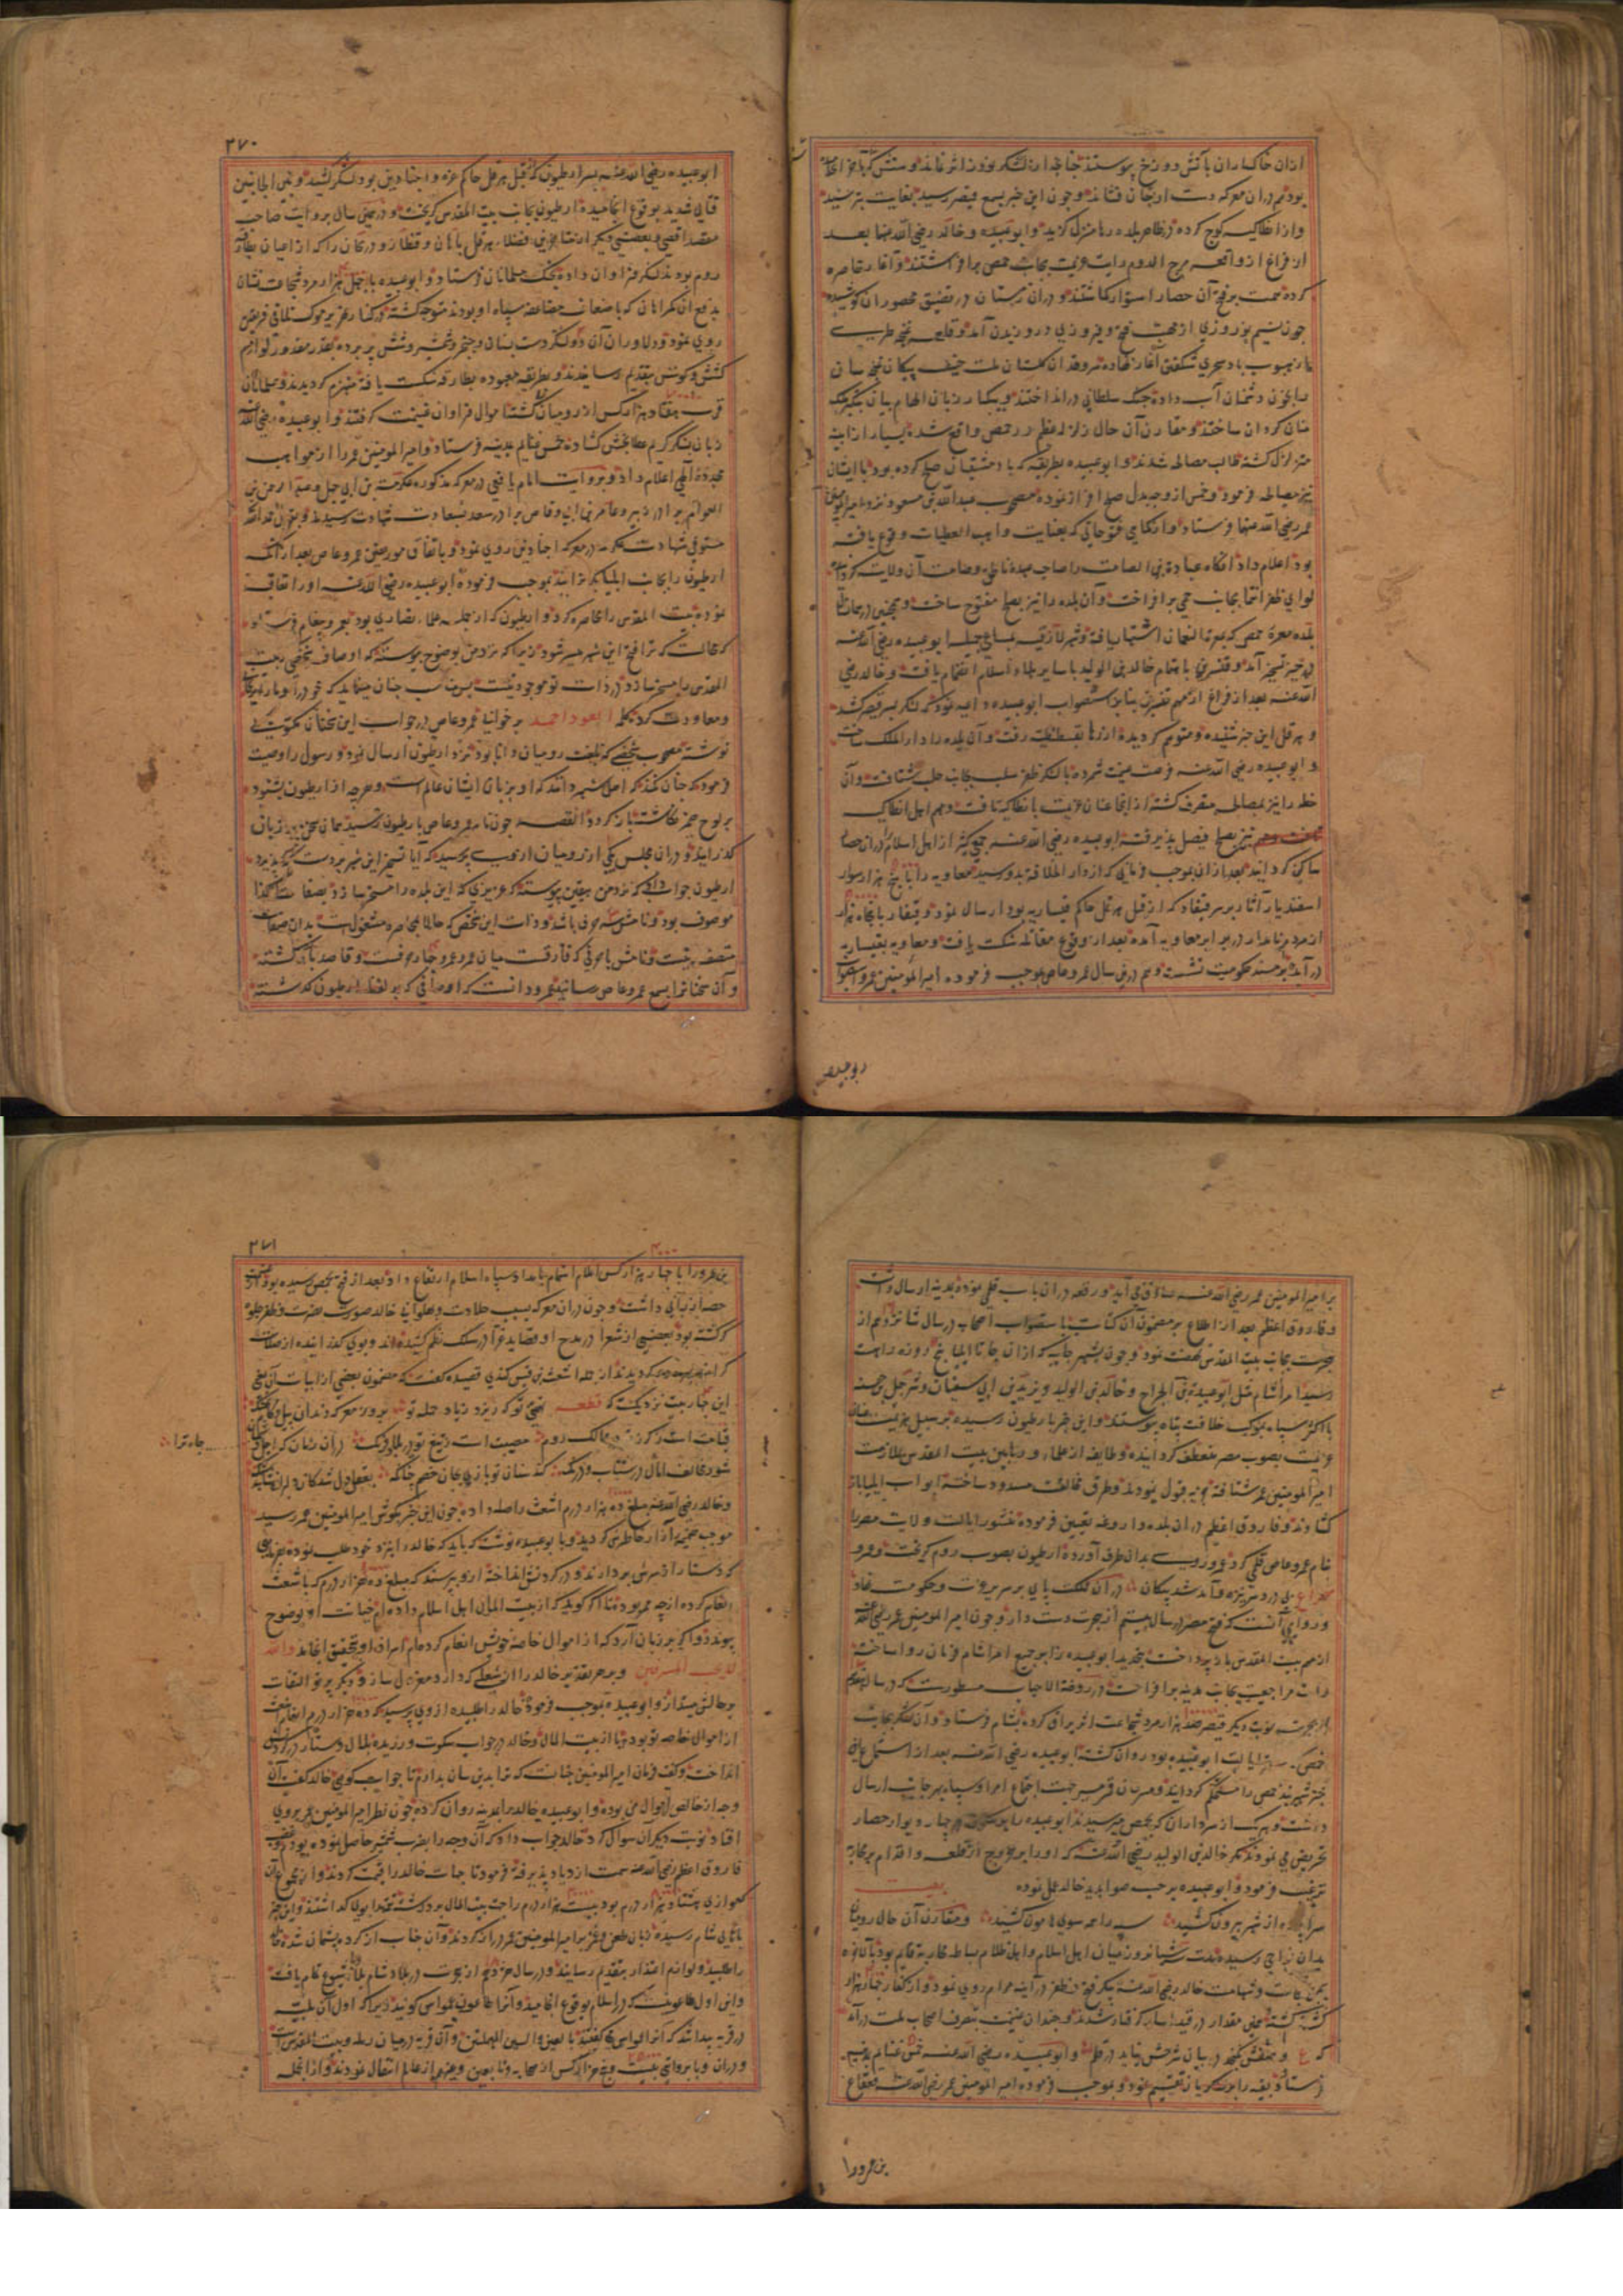 ازان خاکساران باتش دوزخ پیوستند چنانچه ازان لشکر بوزن اثر نماند و سنتش که
بودهم دران معرکه دست از جان فشاند و چون این خبر بسمع قیصر رسید بغایت بترسید
و از انطاکیه کوچ کرده در ظاهر بلده رها منزل گزید و ابو عبیده و خالد رضی الله عنهما بعد
از فراغ از واقعه مرج الدوم رایت عزیمت بجانب حمص برافراشتند و آغاز محاصره
کرده همت بر فتح آن حصار استوار گماشتند و دران زمستان در تضییق محصوران کوشیده
چون نسیم نوروزی از مهب فتح و فیروزی در وزیدن آمد و قلعه غنچه طربسی
از هبوب باد سحری شکفتن آغاز نهاده نمروقدان گلستان ملت حنیف پیکان غنچه سان
را بخون دشمنان آب داده جنگ سلطانی در انداختند و بیکبار زبان الهام بیان بتکبیر
سان گردان ساختند و مقارن آن حال زلزله عظیم در حمص واقع شده بسیار از ابنیه
متزلزل گشته طالب مصالحه شدند و ابو عبیده بطریقه که با دمشقیان صلح کرده بود با ایشان
نیز مصالحه فرمود و خمس از وجه بدل صلح افراز نموده مصحوب عبدالله بن مسعود نزد امیرالمومنین
عمر رضی الله عنهما فرستاد و از کمامی فتوحاتی که بعنایت واهب العطیات وقوع یافته
بود اعلام داد انگاه عبادة بن الصامت را صاحب عهده ناظمی و ضامت آن ولایت کرد
لوای ظفر انتما بجانب حمی برافراخت و آن بلده را نیز بصلح مفتوح ساخت و همچنین
بلده معره حمص که بمعرة النعمان اشتهار یافته و شهر لاذقیه بمساعی جمیله ابو عبیده رضی الله عنه
در حیز تسخیر آمد و قنسرین باهتمام خالد بن الولید با سایر بلاد اسلام انضمام یافت و خالد رضی
الله عنه بعد از فراغ از مهم قنسرین بنابر استصواب ابو عبیده داعیه نمود که لشکر بسر قیصر کشد
و هرقل این خبر شنیده و متوهم گردیده از رها بقسطنطنیه رفت و آن بلده را دارالملک ساخت
و ابو عبیده رضی الله عنه فرصت غنیمت شمرده با لشکر ظفر سلب بجانب حلب شتافت و آن
خطه را نیز بمصالحه متصرف گشته از انجا عنان عزیمت بانطاکیه تافت و مهم اهل انطاکیه
نیز بصلح فیصل پذیرفته ابو عبیده رضی الله عنه جمعی کثیر از اهل اسلام را دران حصار
ساکن گردانید بعد ازان بموجب فرمانی که از دار الخلافة بدو رسید معاویه را با پنج هزار سوار
اسفندیار آثار بر سر قیقاد که از قبل هرقل حاکم قیساریه بود ارسال نمود و قیقار با پنجاه هزار
از مردم نامدار در برابر معاویه آمده بعد از وقوع مقاتله شکست یافت و معاویه بقیساریه
در آمده بر مسند حکومت نشست و هم درین سال عمرو عاص بموجب فرموده امیرالمومنین عمر و استصواب
ابو عبیده
۲۷۰
ابو عبیده رضی الله عنه بسر ارطیون که از قبل هرقل حاکم غزه و اجنادین بود لشکر کشید و بین الجانبین
قتالی شدید بوقوع انجامیده ارطیون بجانب بیت المقدس گریخت و در همین سال بروایت صاحب
مقصد اقصی و بعضی دیگر از متاخرین فضلاء هرقل باهان و قنطار و دریحان را که از اعیان بطارقه
روم بودند لشکر فراوان داده بجنگ مسلمانان فرستاد و ابو عبیده با چهل هزار مرد شجاعت نشان
بدفع آن گمراهان که باضعاف مضاعف سپاه او بودند متوجه گشته در کنار نهر یرموک تلاقی فریقین
روی نمود و دلاوران آن دو لشکر دست بسنان و خنجر و شمشیر و شش پر برده بقدر مقدور لوازم
کشش و کوشش بتقدیم رسانیدند و بطریقه معهوده بطارقه شکست یافته منهزم گردیدند و مسلمانان
قرب هفتاد هزار کس از رومیان کشته اموال فراوان غنیمت گرفتند و ابو عبیده رضی الله عنه
زبان بشکر کریم عطابخش گشاده خمس غنایم بمدینه فرستاد و امیرالمومنین عمر را از مواهب
مجدده الهی اعلام داد و بروایت امام یافعی در معرکه مذکوره عکرمة بن ابی جهل و عبدالرحمن بن
العوام برادر زبیر و عامر بن ابی وقاص برادر سعد بسعادت شهادت رسیدند و بقول حمدالله
مستوفی شهادت عکرمه در معرکه اجنادین روی نمود و باتفاق مورخین عمرو عاص بعد از آنکه
ارطیون را بجانب ایلیا گریزانید بموجب فرموده ابو عبیده رضی الله عنه او را تعاقب
نموده بیت المقدس را محاصره کرد و ارطیون که از جمله علماء نصاری بود بعمرو پیغام فرستاد
که محالست که ترا فتح این شهر میسر شود زیرا که نزد من بوضوح پیوسته که اوصاف شخصی که بیت
المقدس را مسخر سازد در ذات تو موجود نیست
و معاودت کرد کلمه العود احمد برخوانیا عمرو عاص در جواب این سخنان مکتوبی
نوشته مصحوب شخصی که بلغت رومیان دانا بود نزد ارطیون ارسال نمود و رسول را وصیت
فرمود که چنان کند که اهل شهر ندانند که او بزبان ایشان عالم است و هرچه از ارطیون بشنود
بر لوح ضمیر نگاشته باز گردد القصه چون نامه عمرو عاص بارطیون رسید همان سخن بر زبان
گذرانید و دران مجلس یکی از رومیان از وی پرسید که ایا تسخیر این شهر بر دست که میسر پذیرد
ارطیون جواب داد که نزد من بیقین پیوسته که عزیزی که این بلده را مسخر سازد بصفات کذا
موصوف بود و نامش سه حرفی باشد و ذات این شخص که حالا بمحاصره مشغول است بدان صفات
متصف نیست و نامش با حرفی که فارقست میان عمر و عمرو چهار حرفست و قاصد باز گشته
و آن سخنانرا بسمع عمرو عاص رسانید عمرو دانست که اوصافی که بر لفظ ارطیون گذشته
بر امیرالمومنین عمر رضی الله عنه صادق می آید و رقعه دران باب قلمی نموده بمدینه ارسال داشت
و فاروق اعظم بعد از اطلاع بر مضمون آن کتابت باستصواب اصحاب در سال شانزدهم از
هجرت بجانب بیت المقدس نهضت نمود و چون بشهر جابیه که ازان جا تا ایلیا پنج روزه راهست
رسید امراء شام مثل ابو عبیدة بن الجراح و خالد بن الولید و یزید بن ابی سفیان و شرجیل بن حسنه
با اکثر سپاه بموکب خلافت پناه پیوستند و این خبر بارطیون رسیده بر سبیل هزیمت عنان
عزیمت بصوب مصر منعطف گردانیده و طایفه از علماء و رهابین بیت المقدس بملازمت
امیرالمومنین عمر شتافته جزیه قبول نمودند و طرق مخالفت مسدود ساخته ابواب ایلیا باز
گشادند و فاروق اعظم دران بلده داروغه تعیین فرموده منشور ایالت ولایت مصر را
بنام عمرو عاص قلمی کرد عمرو روی بدان طرف آورده ارطیون بصوب روم گریخت و عمرو
مصراع بی دردسر نیزه و آمد شد پیکان دران مملکت پای بر سریر ثروت و حکومت نهاد
و روایتی آنست که فتح مصر در سال بیستم از هجرت دست داد و چون امیرالمومنین عمر رضی الله عنه
از مهم بیت المقدس باز پرداخت بتجدید ابو عبیده را بر جمیع امراء شام فرمان روا ساخته
رایت مراجعت بجانب مدینه برافراخت و در روضة الاحباب مسطورست که در سال هفدهم
از هجرت نوبت دیگر قیصر صد هزار مرد شجاعت اثر یراق کرده بشام فرستاد و آن لشکر بجانب
حمص که در تحت ایالت ابو عبیده بود روان گشته ابو عبیده رضی الله عنه بعد از استماع این
خبر شهربند حمص را مستحکم گردانید و مسرعان قمر مسیر جهت اجتماع امرا و سپاه بهر جانب ارسال
داشت و هر یک از سرداران که بحمص میرسیدند ابو عبیده را بر سکون در چار دیوار حصار
تحریض می نمودند مگر خالد بن الولید رضی الله عنه که او را بر خروج از قلعه و اقدام بر محاربه
ترغیب فرمود و ابو عبیده بر حسب صوابدید خالد عمل نموده بیت
سراپرده از شهر بیرون کشید سپه را همه سوی هامون کشید و مقارن آن حال رومیان
بدان نواحی رسیده مدت سه شبانه روز میان اهل اسلام و اهل ظلام بساط محاربه قایم بود
بمن نجابت و شهامت خالد رضی الله عنه پیکر فتح و ظفر در آینه مرام روی نمود و از کفار چهار هزار
کس کشته گشته بهمین مقدار در قید اسار گرفتار شدند و چندان غنیمت بتصرف اصحاب ملت درآمد
که ع و همش نگنجد در بیان شرحش نیاید در قلم و ابو عبیده رضی الله عنه خمس غنایم بمدینه
فرستاد و بقیه را بر لشکریان تقسیم نمود و بموجب فرموده امیرالمومنین عمر رضی الله عنه قعقاع
بن عمرو را
۲۷۱
۴۰۰۰
بن عمرو را با چهار هزار کس اعلام اهتمام بامداد سپاه اسلام ارتفاع داد و بعد از فتح بحمص رسیده بود از غنیمت
حصه ارزانی داشت و چون دران معرکه بسبب جلادت و پهلوانی خالد صورت نصرت و ظفر جلوه
گر گشته بود بعضی از شعرا در مدح او قصاید غرا در سلک نظم کشیده اند و بوی گذرانیده از صلات
گرانمند بهره مند گردیدند از جمله اشعث بن قیس کندی قصیده گفت که مضمون بعضی از ابیات آن بمعنی
این چهار بیت نزدیکست که قطعه
قیامت است که در ممالک روم مصیبت است ز تیغ تو در بلاد فرنک دران زمان که اجل
جاه ترا
و خالد رضی الله عنه مبلغ ده هزار درم اشعث را صله داده چون این خبر بگوش امیرالمومنین عمر رسید
موجب ضمیمه آزار خاطرش گردید و با بو عبیده نوشت که باید که خالد را نزد خود طلب نموده بفرمای
که دستار از سرش بردارند و در گردنش انداخته از وی پرسند که مبلغ ده هزار درم که باشعث
انعام کرده از چه ممر بوده تا اگر گوید که از بیت المال اهل اسلام داده ام خیانت او بوضوح
پیوندد و اگر بر زبان آرد که از اموال خاصه خویش انعام کرده ام اسراف او بتحقیق انجامد والله
لایحب المسرفین و بر هر تقدیر خالد را از شغلی که دارد معزول ساز و دیگر پرتو التفات
بر حالش مینداز و ابو عبیده بموجب فرموده خالد را طلبیده از وی پرسید که ده هزار درم انعام اشعث
از اموال خاصه تو بود یا از بیت المال و خالد در جواب سکوت ورزیده بلال دستار در گردنش
انداخت و گفت فرمان امیرالمومنین چنانست که ترا بدین سان بدارم تا جواب گویی خالد گفت آن
وجه از خالص اموال من بوده و ابو عبیده خالد را بمدینه روان کرده چون نظر امیرالمومنین عمر بر وی
افتاد نوبت دیگر آن سوال کرد خالد جواب داد که آن وجه را بضرب شمشیر حاصل نموده بودم
فاروق اعظم رضی الله عنه سمت ازدیاد پذیرفته فرمود تا جهات خالد را قیمت کردند و از مجموع آن
که موازی هشتاد هزار درم بود بیست هزار درم را جهت بیت المال برداشته تتمه را بوی گذاشتند و این خبر
باهالی شام رسیده زبان طعن و تعییر بر امیرالمومنین عمر دراز کردند و آن جناب از کرده پشیمان شده خالد
را طلبید و لوازم اعتذار بتقدیم رسانید و در سال هژدهم از هجرت در بلاد شام بلای طاعون شیوع تمام یافت
و این اول طاعونیست که در اسلام بوقوع انجامید و آنرا طاعون عمواس گویند زیرا که اول آن بلیت
در قریه پیدا شد که آنرا عمواس می گفتند بالعین و السین المهملتین و آن قریه در میان رمله و بیت المقدس است
و دران وبا بروایتی بیست و پنج هزار کس از صحابه و تابعین و غیرهم از عالم انتقال نمودند و از انجمله